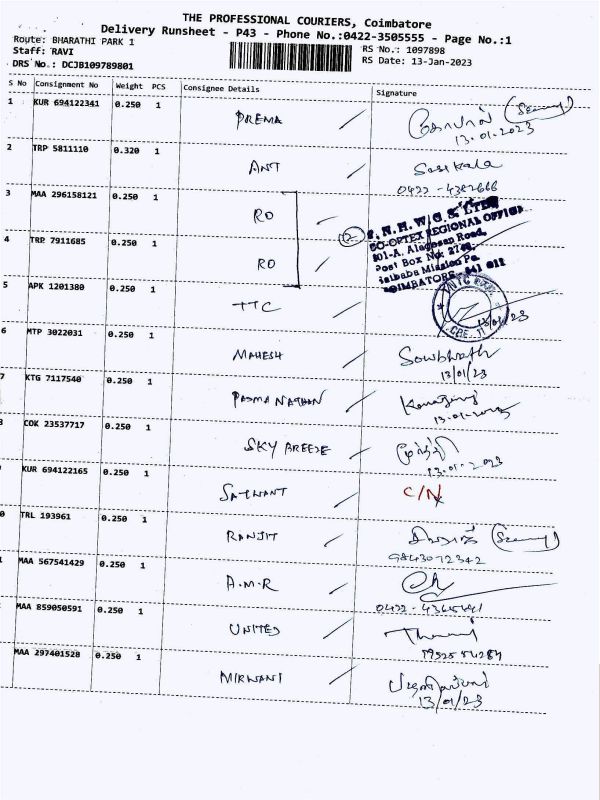 THE PROFESSIONAL COURIERS, Coimbatore
Delivery Runsheet - P43 - Phone No.:0422-3505555 - Page No.:1
Route: BHARATHI PARK 1
Staff: RAVI
DRS No.: DCJB109789801
RS No.: 1097898
RS Date: 13-Jan-2023
S No Consignment No Weight PCS Consignee Details Signature
1 KUR 694122341 0.250 1 PREMA
13-01-2023
2 TRP 5811110 0.320 1 ANT Sasikala
0422-4382666
3 MAA 296158121 0.250 1 RO
CO-OPTEX REGIONAL OFFICE
Post Box No: 2748,
4 TRP 7911685 0.250 1 RO
5 APK 1201380 0.250 1 TTC
13/01/23
6 MTP 3022031 0.250 1 MAHESH
13/01/23
7 KTG 7117540 0.250 1 PADMA NATHAN
13-01-2023
COK 23537717 0.250 1 SKY BREEZE
13-01-2023
KUR 694122165 0.250 1 C/N
0 TRL 193961 0.250 1 RANJIT
9843072342
MAA 567541429 0.250 1 A.M.R
MAA 859050591 0.250 1 UNITED
MAA 297401528 0.250 1 MIRWANI
13/01/23